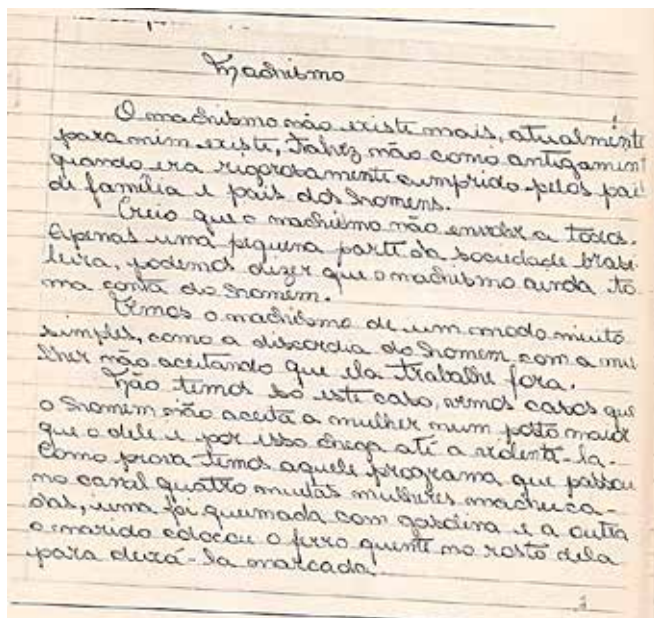 Machismo
O machismo não existe mais, atualmente
para mim existe, Talvez não como antigament
quando era rigorosamente cumprido pelos pai
de família e pais dos homens.
Creio que o machismo não envolve a todos.
Apenas uma pequena parte da sociedade brasi-
leira, podemos dizer que o machismo ainda to-
ma conta do homem.
Temos o machismo de um modo muito
simples, como a discordia do homem com a mu
lher não aceitando que ela trabalhe fora.
Não temos so este caso, temos casos que
o homem não aceita a mulher num posto maior
que o dele e por isso chega até a
Como prova temos aquele programa que passou
no canal quatro muitas mulheres machuca-
das, uma foi queimada com gasolina e a outra
o marido colocou o ferro quente no rosto dela
para deixá-la marcada